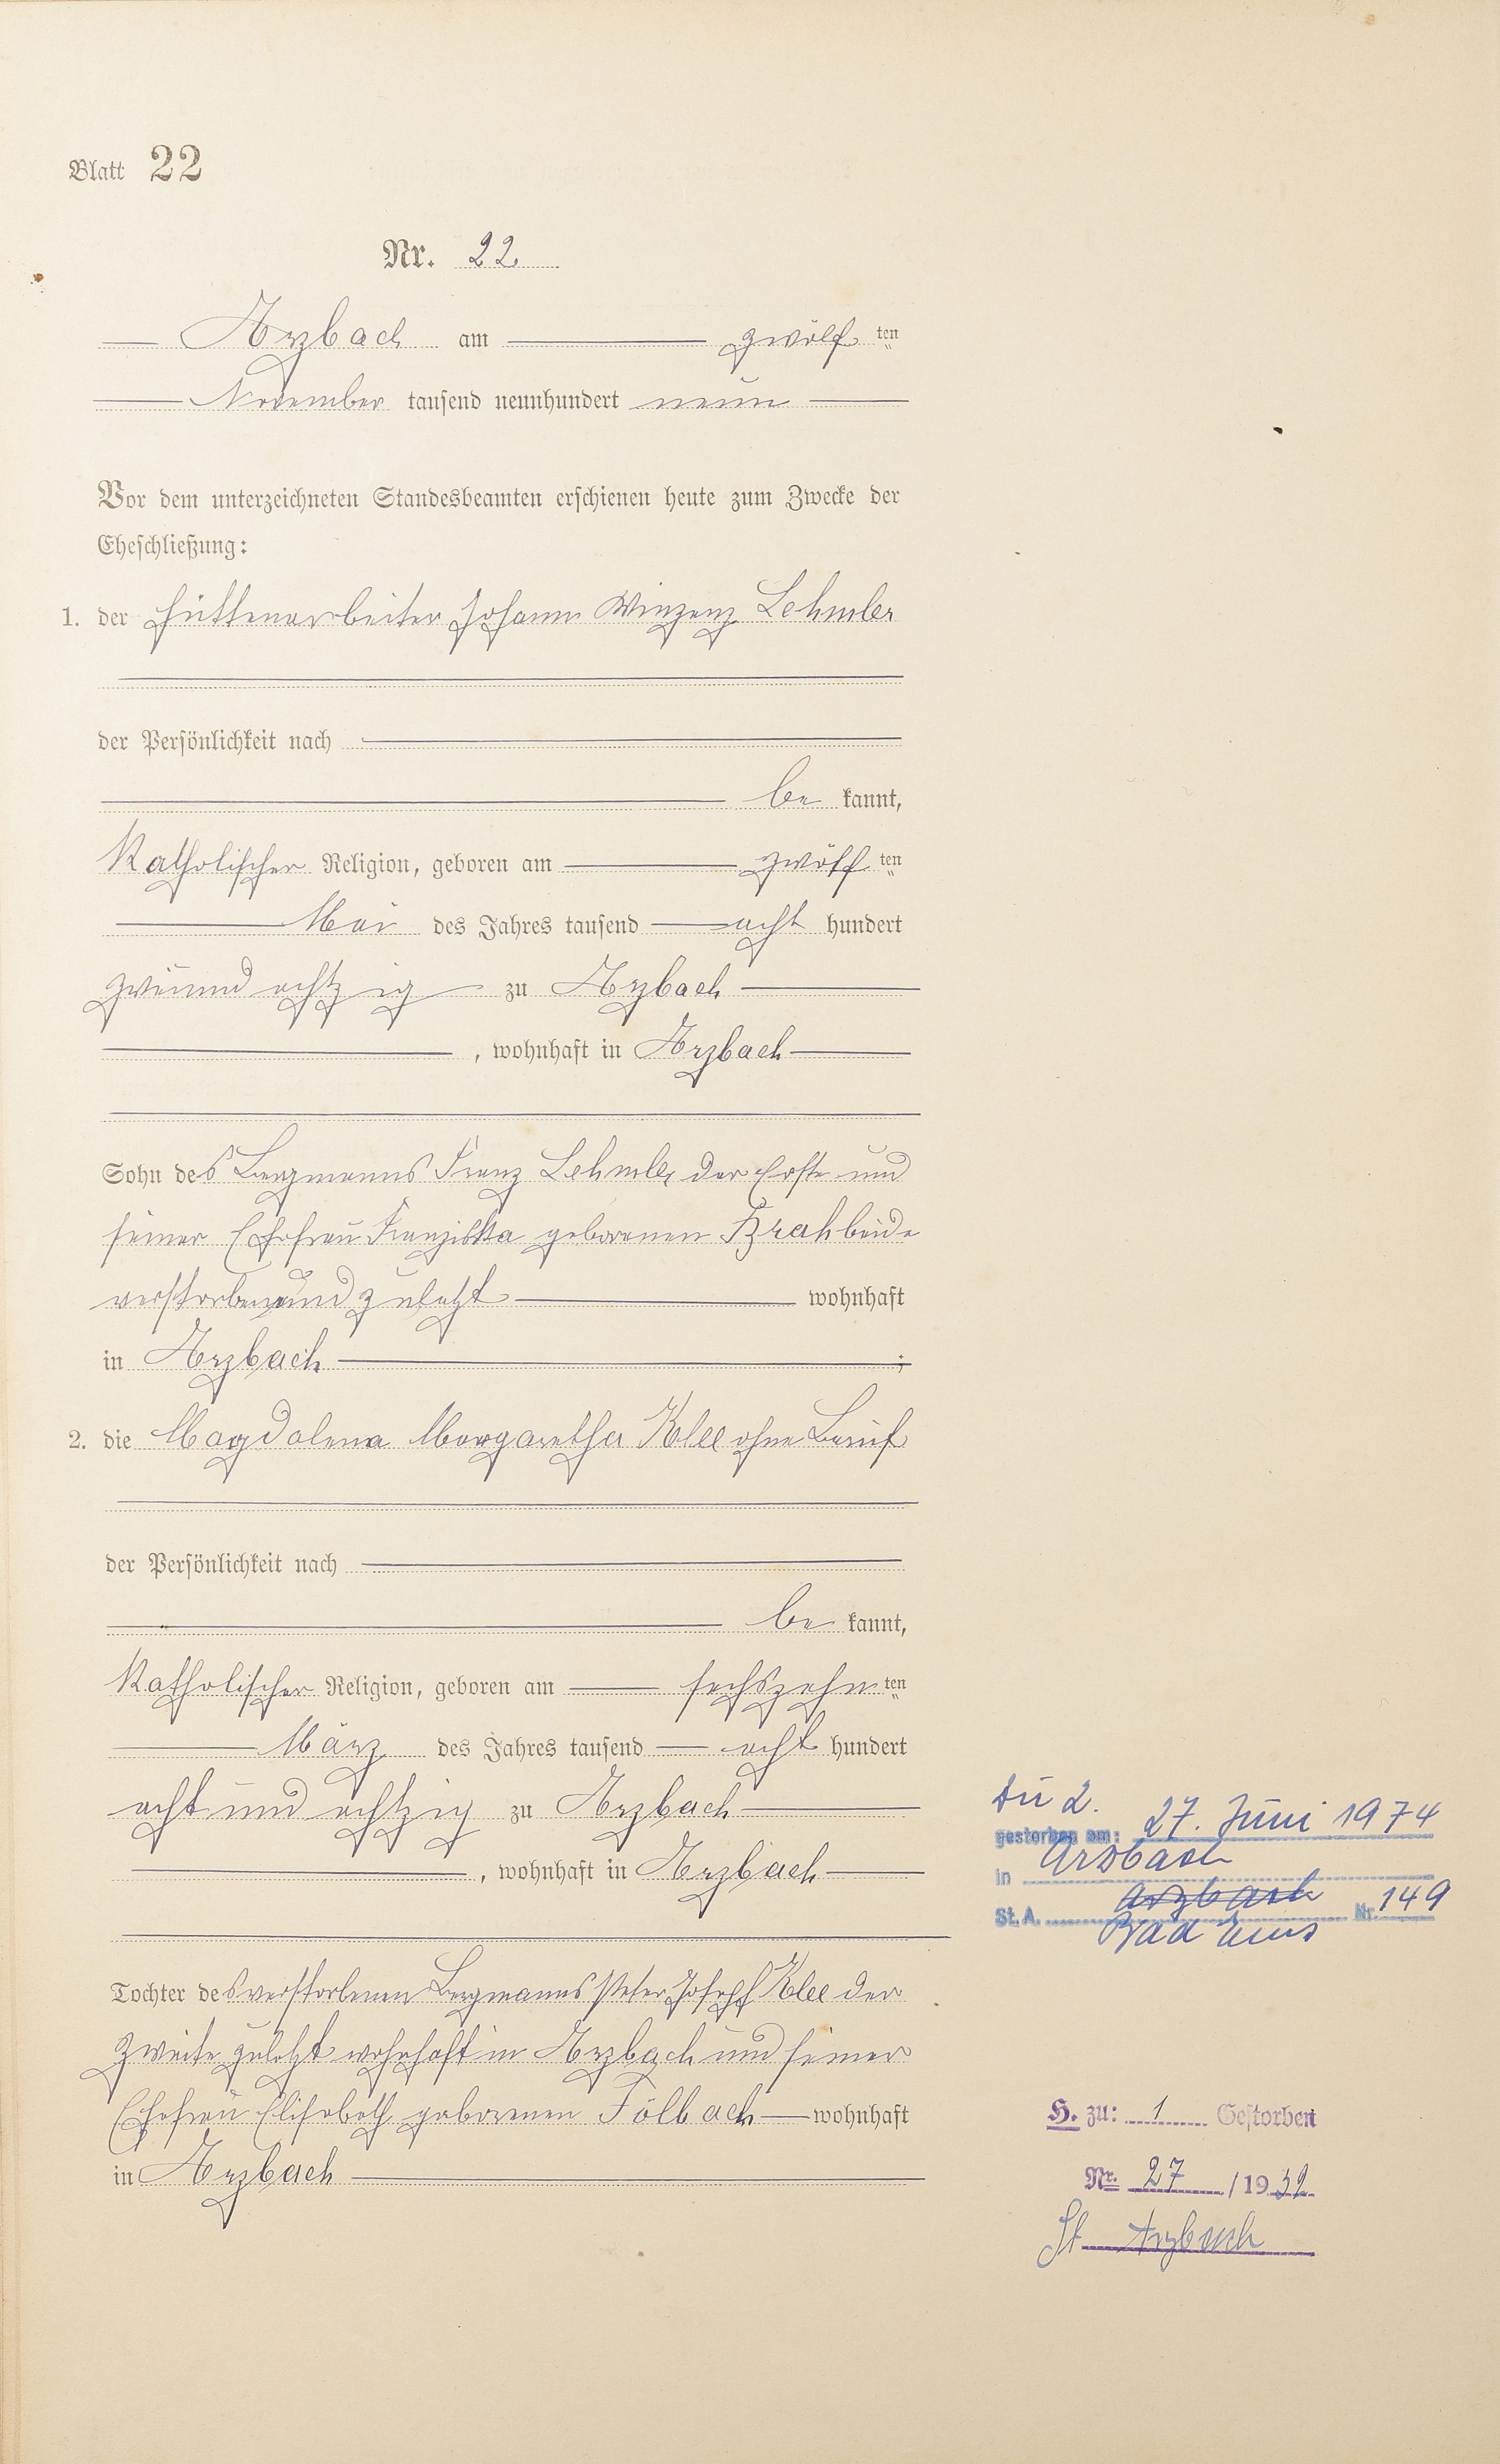 Blatt 22
Nr. 22
Arzbach am zwölf ten
November tausend neunhundert neun
Vor dem unterzeichneten Standesbeamten erschienen heute zum Zwecke der
Eheschließung:
1. der Hüttenarbeiter Johann Winzenz Lehmler
der Persönlichkeit nach
be kannt,
Katholischer Religion, geboren am zwölf ten
Mai des Jahres tausend acht hundert
zweiund achtzig zu Arzbach
, wohnhaft in Arzbach
Sohn des Bergmanns Franz Lehmler der Erste und
seiner Ehefrau Franziska geborenen Brah beide
verstorben und zuletzt wohnhaft
in Arzbach ;
2. die Magdalena Margaretha Klee ohne Beruf
der Persönlichkeit nach
be kannt,
Katholischer Religion, geboren am sechszehn ten
März des Jahres tausend acht hundert
acht und achtzig zu Arzbach
, wohnhaft in Arzbach
Tochter des verstorbenen Bergmanns Peter Joseph Klee der
Zweite zuletzt wohnhaft in Arzbach und seiner
Ehefrau Elisabeth geborenen Fölbach wohnhaft
in Arzbach
zu 2.
gestorben am: 27. Juni 1974
in Arzbach
St. A. Arzbach Nr. 149
Bad Ems
H. zu: 1 Gestorben
Nr. 27 / 1932
St Arzbach